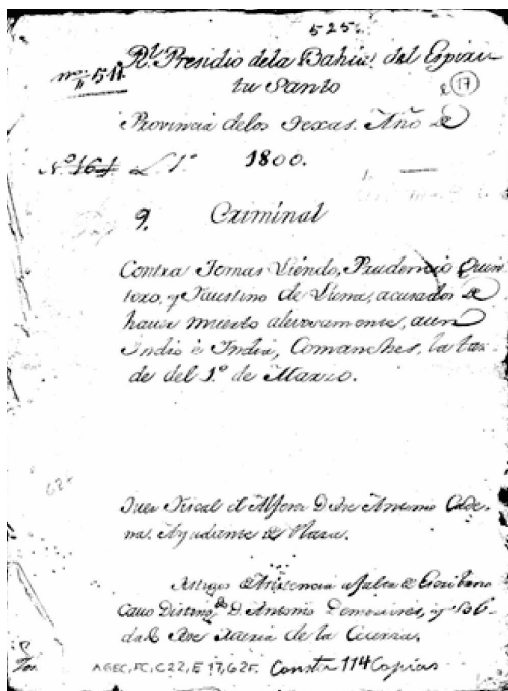 525.
Rl. Presidio dela Bahia del Espiri
tu Santo
17
Provincia delos Texas. Año de
1800.
9. Criminal
Contra Tomas Liendo, Prudencio Quin
tero, y Faustino de Luna, acusados de
haver muerto alevosamente, aun
Indio è India, Comanches, la tar
de del 1º de Marzo.
Juez Fiscal el Alferez Dn Jose Antonio Cade
na. Ayudante de Plaza.
Testigos de Asistencia a falta de Escribano
Cavo Disting.do D. Antonio y Sol-
dado Jose Maria de la
AGEC, FC, C22, E17, 62F. Consta 114 Copias